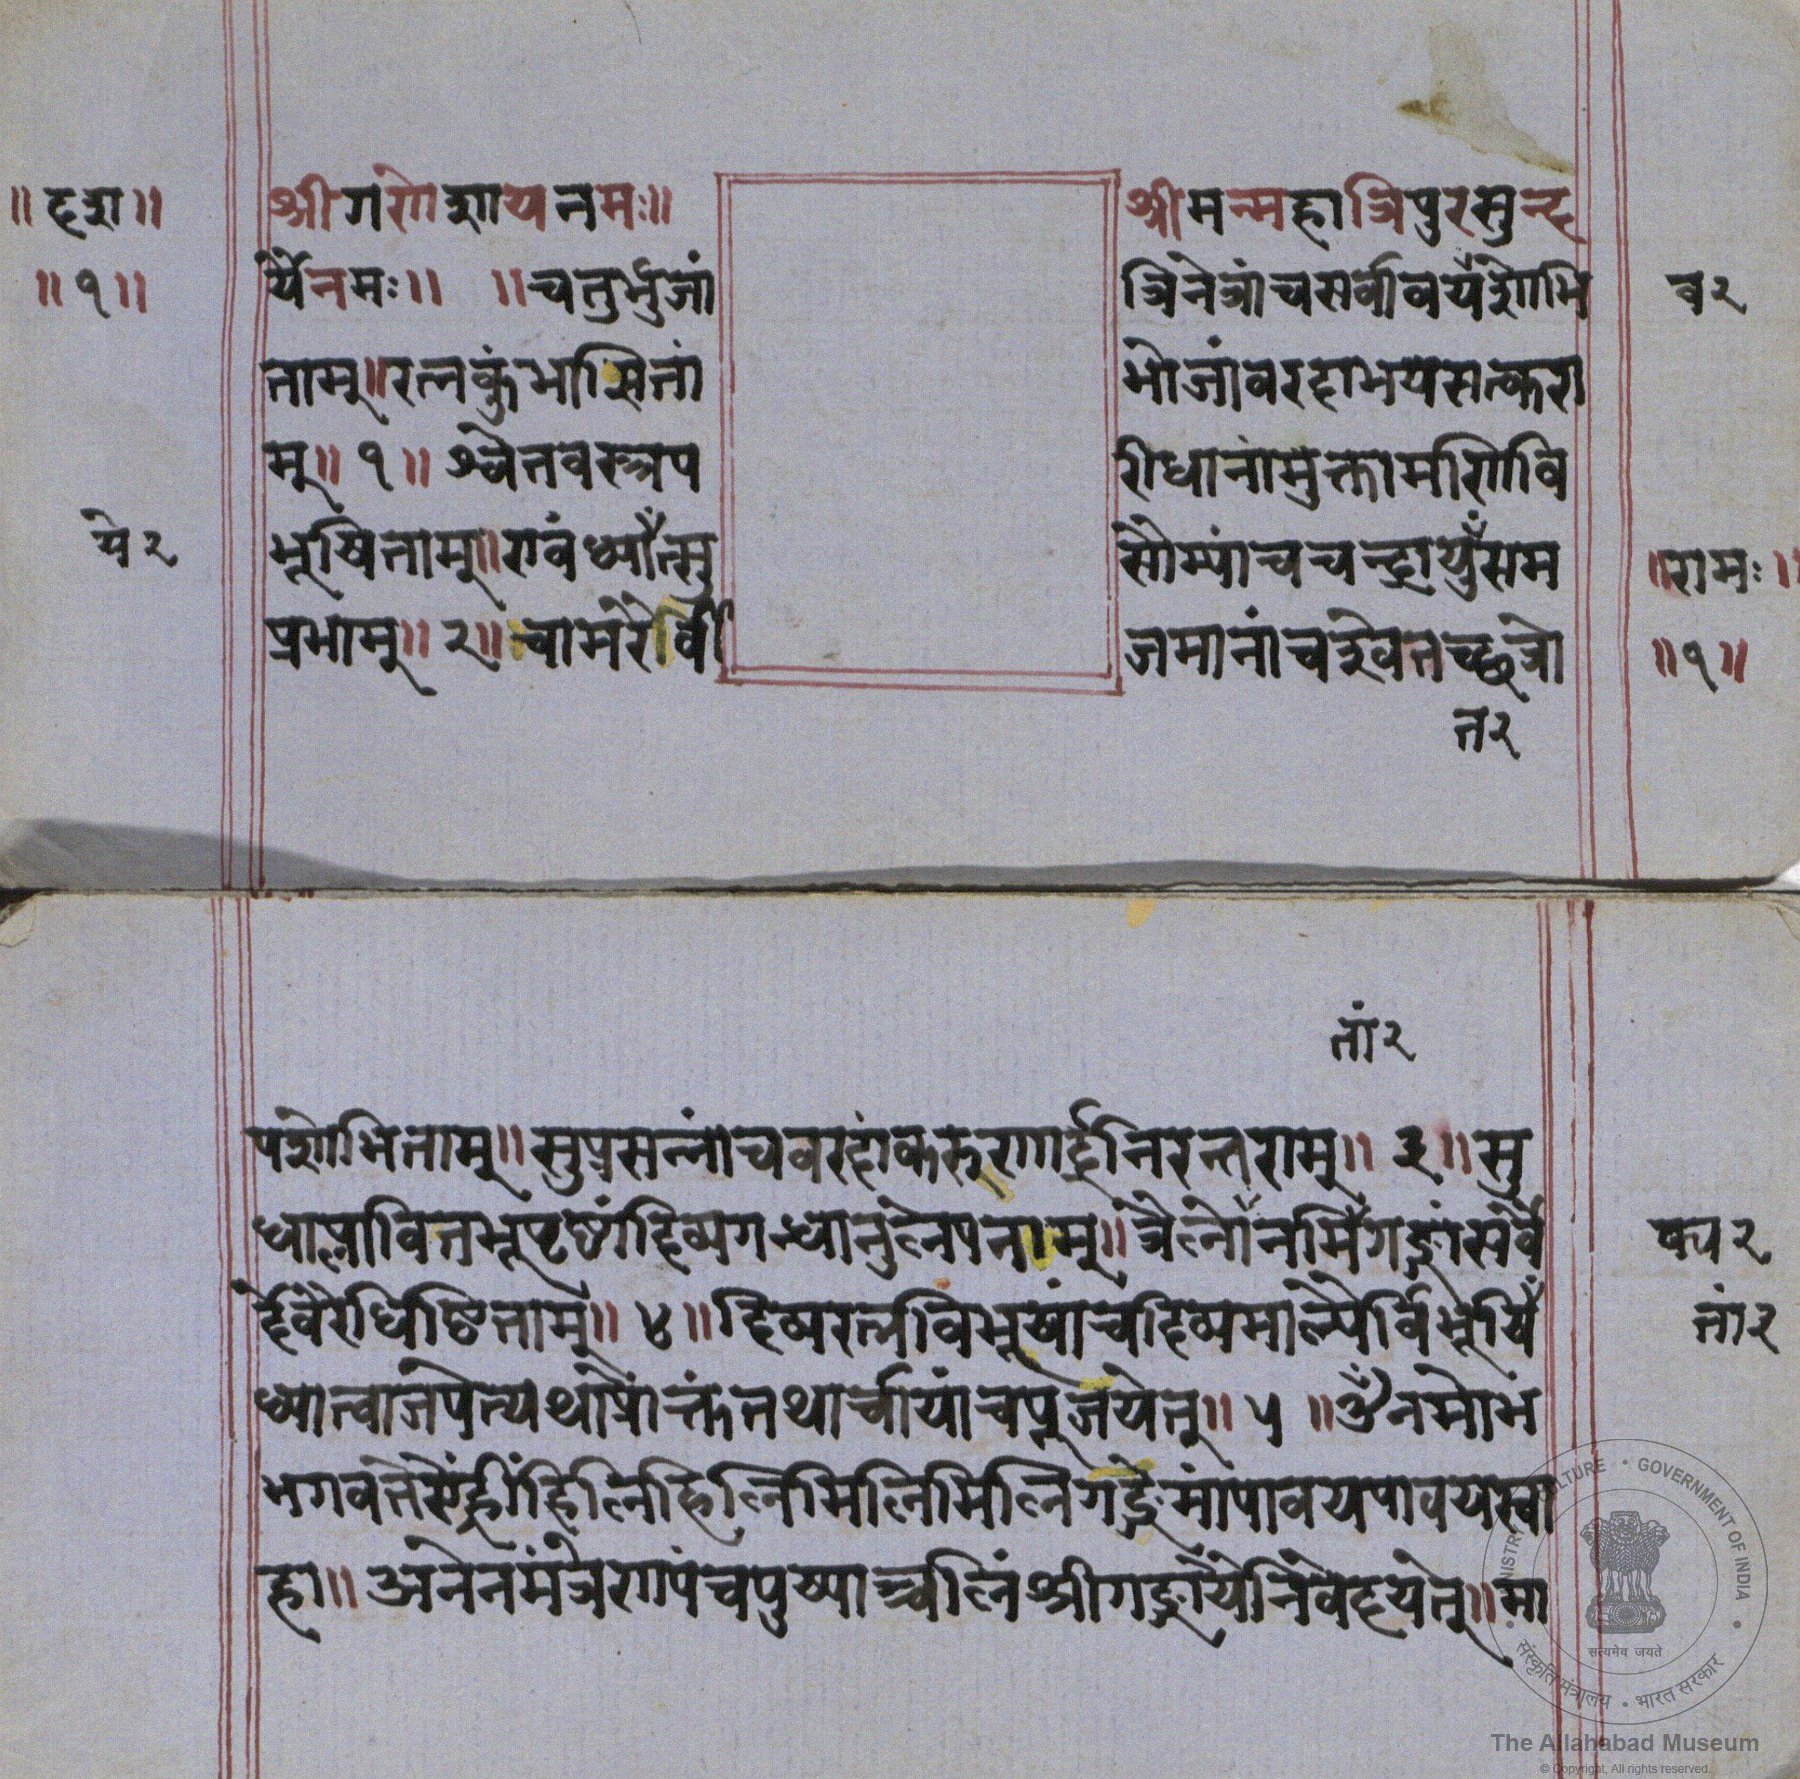 ॥ दश ॥ श्रीगणेशायनमः॥ श्रीमन्महात्रिपुरसुन्द
॥ १ ॥ र्यैनमः॥ ॥चतुर्भुजां त्रिनेत्रांचसर्वावयँशोभि व२
ताम्॥रत्नकुंभांसितां भोजांवरदाभयसत्करा
म्॥ १ ॥ श्वेतवस्त्रप रीधानांमुक्तामणिवि
ये२ भूषिताम्॥एवं ध्याँत्सु सौम्यांचचन्द्रायुँसम ॥रामः॥
प्रभाम्॥ २॥ चामरैर्वी जमानांचश्वेतच्छत्रो ॥१॥
त२
तां२
पशोभिताम्॥सुप्रसन्नांचवरदांकरुणार्द्रनिरन्तराम्॥ ३॥सु
धाप्लावितभूपृष्ठांदिव्यगन्धानुलेपनाम्॥त्रैलोँनमिँगङ्गांसर्वै
र्देवैरधिष्ठिताम्॥ ४ ॥दिव्यरत्नविभूषांचदिव्यमाल्यैर्विभूषिँ तां२
ध्यात्वाजपेत्यथाप्रोक्तंतथार्चायांचपूजयेत्॥ ५ ॥ॐनमोभं
भगवतेसेंह्रींहिलिहिलिमिलिमिलिगङ्गेमांपावयपावयस्वा
हा॥अनेनमंत्रेणपंचपुष्पाञ्चलिंश्रीगङ्गायैनिवेदयेत्॥मा
MINISTRY CULTURE • GOVERNMENT OF INDIA
सत्यमेव जयते
संस्कृति मंत्रालय • भारत सरकार
The Allahabad Museum
© Copyright, All rights reserved.